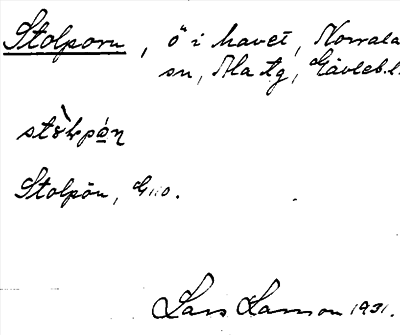 Stolporn, ö i havet, Norrala
sn, Ala tg, Gävleb. l.
Stolpön, G
Lars Larsson 1931.